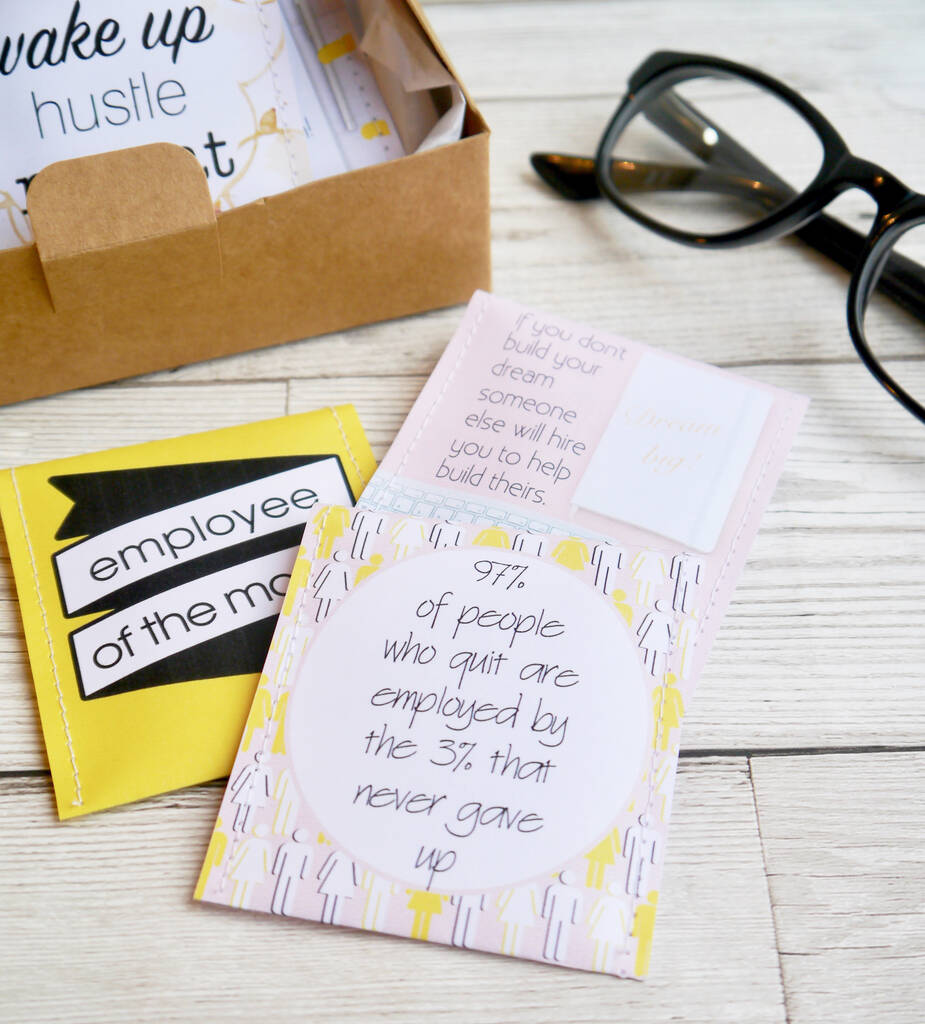 wake up
hustle
If you don't
build your
dream
someone
else will hire
you to help
build theirs.
Dream
big!
employee
of the mo
97%
of people
who quit are
employed by
the 3% that
never gave
up